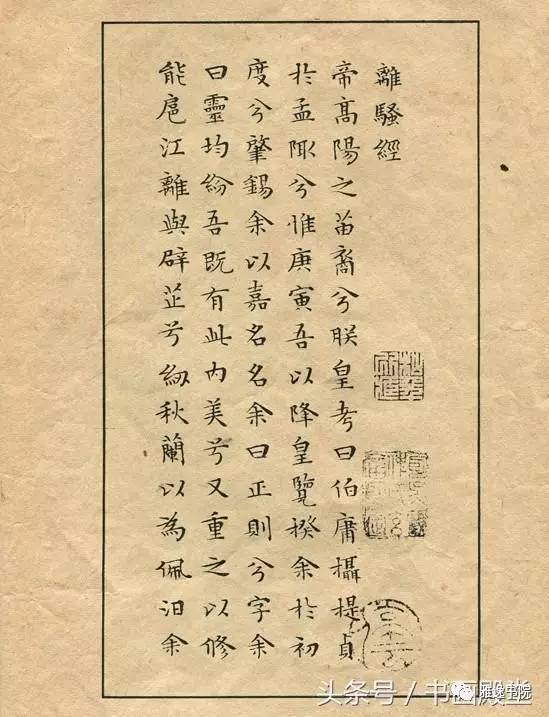 離騷經
帝高陽之苗裔兮朕皇考曰伯庸攝提貞
於孟陬兮惟庚寅吾以降皇覽揆余於初
度兮肇錫余以嘉名名余曰正則兮字余
曰靈均紛吾既有此內美兮又重之以修
能扈江離與辟芷兮紉秋蘭以為佩汩余
头条号 / 书画殿堂